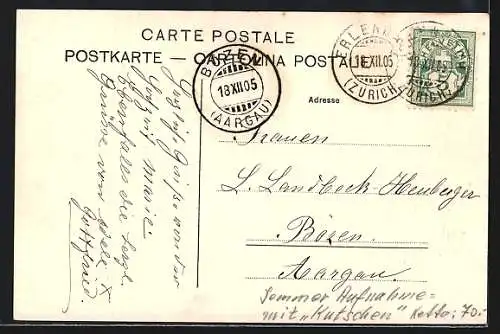 CARTE POSTALE
POSTKARTE — CARTOLINA POSTALE
BŒZEN
18XII05
(AARGAU)
ERLENBACH
18XII05
(ZÜRICH)
Adresse
Frauen
L. Landbeck-Heuberger
Bözen
Aargau.
Herzliche Grüsse von der
Marie
Ebenfalls die herzl.
Grüsse von
Gottfried
Sommer Aufnahme =
mit „Kutschen" netto: 70.-